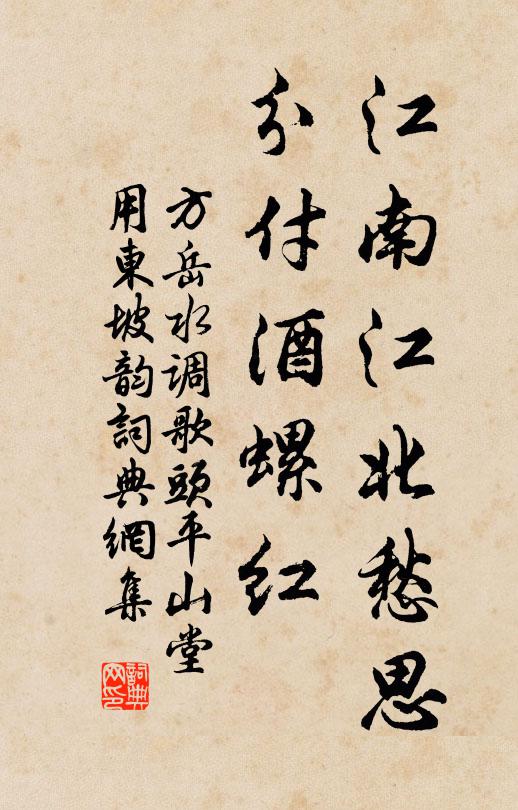 江南江北愁思
分付酒螺红
方岳水调歌頭平山堂
用東坡韵詞典網集
詞典网印